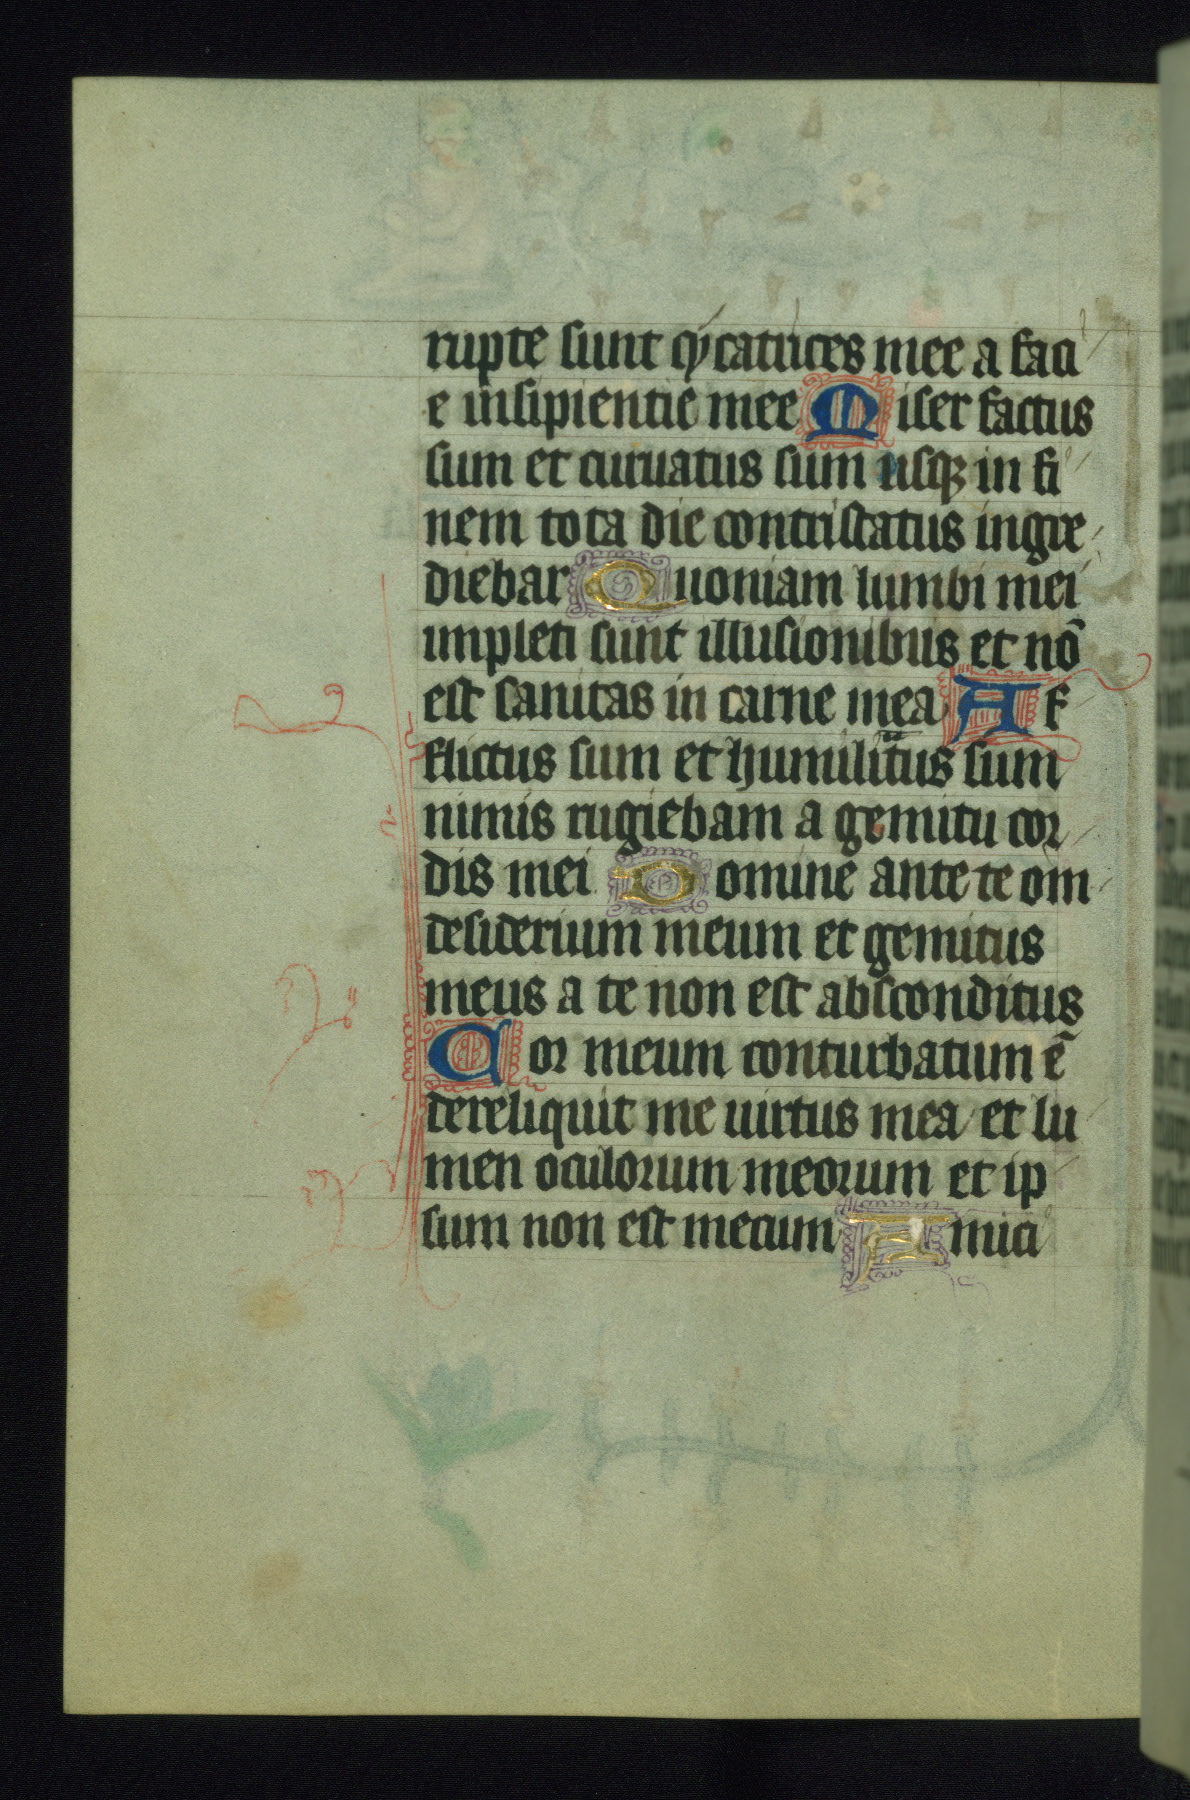 rupte sunt cycatrices mee a faci
e insipientie mee Miser factus
sum et curuatus sum usqꝫ in fi
nem tota die contristatus ingre
diebar Quoniam lumbi mei
impleti sunt illusionibus et nō
est sanitas in carne mea Af
flictus sum et humilitus sum
nimis rugiebam a gemitu cor
dis mei Domine ante te om̄
desiderium meum et gemitus
meus a te non est absconditus
Cor meum conturbatum ē
dereliquit me uirtus mea et lu
men oculorum meorum et ip
sum non est mecum Amici